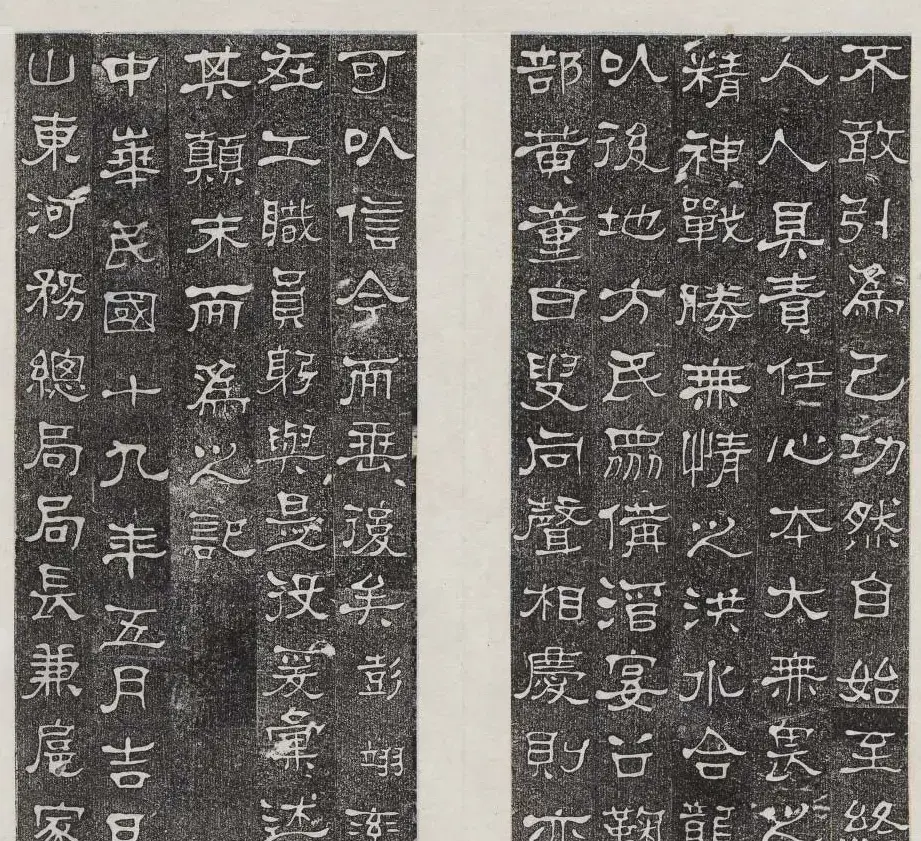 不敢引為己功然自始至終
人人具責任心本大無畏之
精神戰勝無情之洪水合龍
以後地方民眾備酒宴召鞠
部黃童白叟同聲相慶則亦
可以信今而垂後矣彭翊率
在工職員躬與是役爰彙述
其顛末而為之記
中華民國十九年五月吉日
山東河務總局局長兼扈家